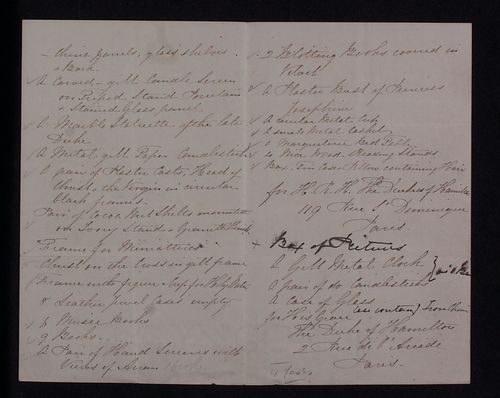 - three panels, glass shelves
& Back
A carved - gilt Candle Screen
on Stand Porcelain
& Stained Glass panel
A Marble Statuette of the late
Duke
A Metal gilt Paper Candlestick
A pair of Plaster Casts, Head of
Christ, the Virgin in circular
black frames
Pair of Cocoa Nut Shells mounted
on Ivory Stands & Granite
Frame for Miniatures
Christ on the Cross in gilt frame
Frame with figure & cup for Holy Water
8 Leather Jewel Cases empty
6 Music Books
9 Books
A Pair of Hand Screens with
Views of Arran
2 Blotting Books covered in
Velvet
A Plaster Bust of Princess
Josephine
A circular Metal
A small Metal Casket
2 Marqueterie Bed Table
& Nice Wood Reading Stands
Box, Tin Case Pillow containing Hair
for H. R. H. The Duchess of Hamilton
119 Rue St Dominique
Paris
Box of Pictures
A Gilt Metal Clock
A pair of do Candlesticks
A case of Glass
for His Grace
The Duke of Hamilton
2 Rue de l'Arcade
Paris